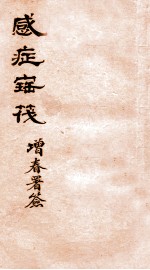 感症寶筏
增春署簽